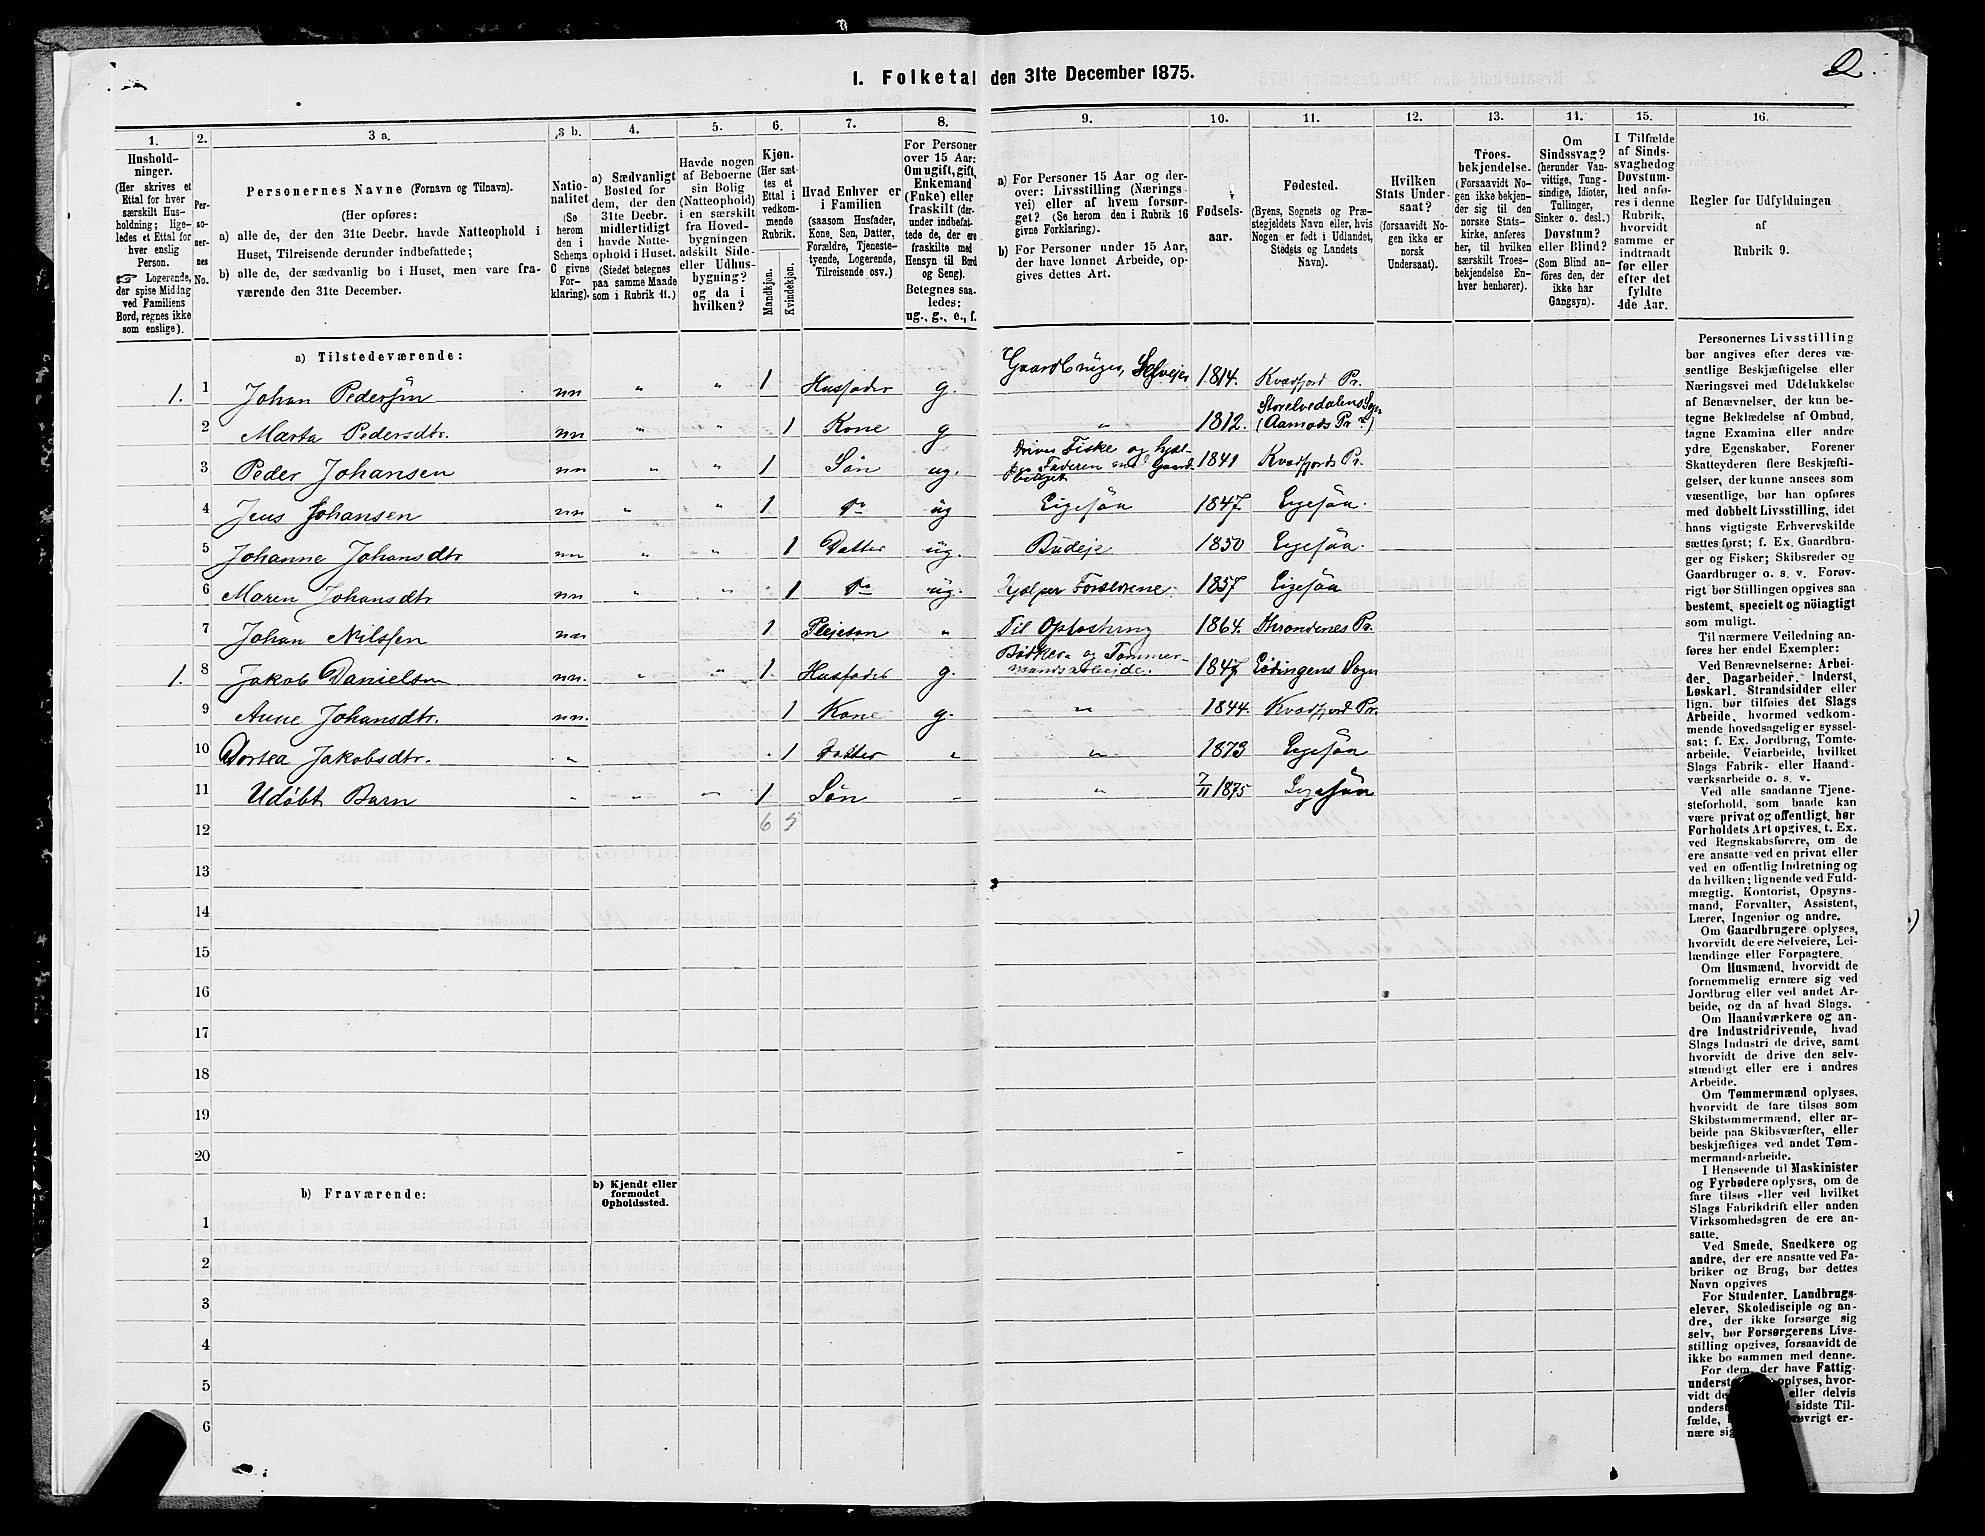 2.
1. Folketal den 31te December 1875.
1.
Hushold-
ninger.
(Her skrives et
Ettal for hver
særskilt Hus-
holdning; lige-
ledes et Ettal for
hver enslig
Person.
☞ Logerende,
der spise Middag
ved Familiens
Bord, regnes ikke
som enslige).
2.
Per-
so-
ner-
nes
No.
3 a.
Personernes Navne (Fornavn og Tilnavn).
(Her opføres:
a) alle de, der den 31te Decbr. havde Natteophold i
Huset, Tilreisende derunder indbefattede;
b) alle de, der sædvanlig bo i Huset, men vare fra-
værende den 31te December.
3 b.
Natio-
nalitet
(Se
herom
den i
Schema
O givne
For-
klaring).
4.
a) Sædvanligt
Bosted for
dem, der den
31te Decbr.
midlertidigt
havde Natte-
ophold i Huset.
(Stedet betegnes
paa samme Maade
som i Rubrik 11.)
5.
Havde nogen
af Beboerne
sin Bolig
(Natteophold)
i en særskilt
fra Hoved-
bygningen
adskilt Side-
eller Udhus-
bygning?
og da i
hvilken?
6.
Kjøn.
(Her sæt-
tes et
Ettal i
vedkom-
mende
Rubrik.
Mandkjøn.
Kvindekjøn.
7.
Hvad Enhver er
i Familien
(saasom Husfader,
Kone, Søn, Datter,
Forældre, Tjeneste-
tyende, Logerende,
Tilreisende osv.)
8.
For Personer
over 15 Aar:
Om ugift, gift,
Enkemand
(Enke) eller
fraskilt (der-
under indbefat-
tede de, der ere
fraskilte med
Hensyn til Bord
og Seng).
Betegnes saa-
ledes:
ug., g., e., f.
9.
a) For Personer 15 Aar og der-
over: Livsstilling (Nærings-
vei) eller af hvem forsør-
get? (Se herom den i Rubrik 16
givne Forklaring).
b) For Personer under 15 Aar,
der have lønnet Arbeide, op-
gives dettes Art.
10.
Fødsels-
aar.
11.
Fødested.
(Byens, Sognets og Præ-
stegjeldets Navn eller, hvis
Nogen er født i Udlandet,
Stedets og Landets
Navn).
12.
Hvilken
Stats Under-
saat?
(forsaavidt No-
gen ikke er
norsk
Undersaat).
13.
Troes-
bekjendelse.
(Forsaavidt No-
gen ikke bekjen-
der sig til den
norske Stats-
kirke, anføres
her, til hvilken
særskilt Troes-
bekjendelse En-
hver henhører).
14.
Om
Sindssvag?
(herunder Van-
vittige, Tung-
sindige, Idioter,
Tullinger,
Sinker o. desl.)
Døvstum?
eller Blind?
(Som Blind an-
føres den, der
ikke har
Gangsyn).
15.
I Tilfælde
af Sinds-
svaghed og
Døvstum-
hed anfø-
res i denne
Rubrik,
hvorvidt
samme er
indtraadt
før eller
efter det
fyldte
4de Aar.
16.
Regler for Udfyldningen
af
Rubrik 9.
a) Tilstedeværende:
1. 1 Johan Pedersen nn " " 1 Husfader g. Gaardbruger, Selveier 1814. Kvædfjord Pr.
2 Marta Pedersdtr. nn " " 1 Kone g " 1812. Storelvedalens Sogn
(Aamods Pr.)
3 Peder Johansen nn " " 1 Søn ug. Driver Fiske og hjæl-
per Faderen med Gaards-
bruget 1841 Kvædfjords Pr.
4 Jens Johansen nn " " 1 do ug Ligesaa 1847. Ligesaa.
5 Johanne Johansdtr nn " " 1 Datter ug. Budeje 1850 Ligesaa.
6 Maren Johansdtr nn " " 1 do ug. Hjælper Forældrene. 1857 Ligesaa
7 Johan Nilssen nn 1 Plejesøn " Til Opfostring 1864. Throndenes Pr.
1. 8 Jakob Danielsen nn. " " 1 Husfader g. Bødker og Tømmer-
mandsarbeide. 1847 Lødingens Sogn
9 Anne Johansdtr. nn. 1 Kone g. " 1844. Kvædfjord Pr.
10 Dortea Jakobsdtr. " 1 Datter " " 1873 Ligesaa
11 Udøbt Barn " " " 1 Søn " " 7/11 1875 Ligesaa
12 6 5
13
14
15
16
17
18
19
20
b) Fraværende:
b) Kjendt eller
formodet
Opholdssted.
1
2
3
4
5
6
Personernes Livsstilling
bør angives efter deres væ-
sentlige Beskjæftigelse eller
Næringsvei med Udelukkelse
af Benævnelser, der kun be-
tegne Beklædelse af Ombud,
tagne Examina eller andre
ydre Egenskaber. Forener
Skatteyderen flere Beskjæfti-
gelser, der kunne ansees som
væsentlige, bør han opføres
med dobbelt Livsstilling, idet
hans vigtigste Erhvervskilde
sættes først; f. Ex. Gaardbru-
ger og Fisker; Skibsreder og
Gaardbruger o. s. v. Forøv-
rigt bør Stillingen opgives saa
bestemt, specielt og nöiagtigt
som muligt.
Til nærmere Veiledning an-
føres her endel Exempler:
Ved Benævnelserne: Arbei-
der, Dagarbeider, Inderst,
Løskarl, Strandsidder eller
lign. bør tilføies det Slags
Arbeide, hvormed vedkom-
mende hovedsagelig er syssel-
sat; f. Ex. Jordbrug, Tomte-
arbeide, Veiarbeide, hvilket
Slags Fabrik- eller Haand-
værksarbeide o. s. v.
Ved alle saadanne Tjene-
steforhold, som baade kan
være privat og offentligt, bør
Forholdets Art opgives. t. Ex.
ved Regnskabsførere, om de
ere ansatte ved en privat eller
ved en offentlig Indretning og
da hvilken; lignende ved Fuld-
mægtig, Kontorist, Opsyns-
mand, Forvalter, Assistent,
Lærer, Ingeniør og andre.
Om Gaardbrugere oplyses,
hvorvidt de ere Selveiere, Lei-
lændinge eller Forpagtere.
Om Husmænd, hvorvidt de
fornemmelig ernære sig ved
Jordbrug eller ved andet Ar-
beide, og da af hvad Slags.
Om Haandværkere og an-
dre Industridrivende, hvad
Slags Industri de drive, samt
hvorvidt de drive den selv-
stændigt eller ere i andres
Arbeide.
Om Tømmermænd oplyses,
hvorvidt de fare tilsøs som
Skibstømmermænd, eller ar-
beide paa Skibsværfter, eller
beskjæftiges ved andet Tøm-
mermandarbeide.
I Henseende til Maskinister
og Fyrbødere oplyses, om de
fare tilsøs eller ved hvilket
Slags Fabrikdrift eller anden
Virksomhedsgren de ere an-
satte.
Ved Smede, Snedkere og
andre, der ere ansatte ved Fa-
briker og Brug, bør dettes
Navn opgives
For Studenter, Landbrugs-
elever, Skoledisciple og an-
dre, der ikke forsørge sig
selv, bør Forsørgerens Livs-
stilling opgives, forsaavidt de
ikke bo sammen med denne.
For dem, der have Fattig-
underst oplyses, hvor-
vidt de eller delvis
underst sidste Til-
fælde, øvrigt er-
nære sig